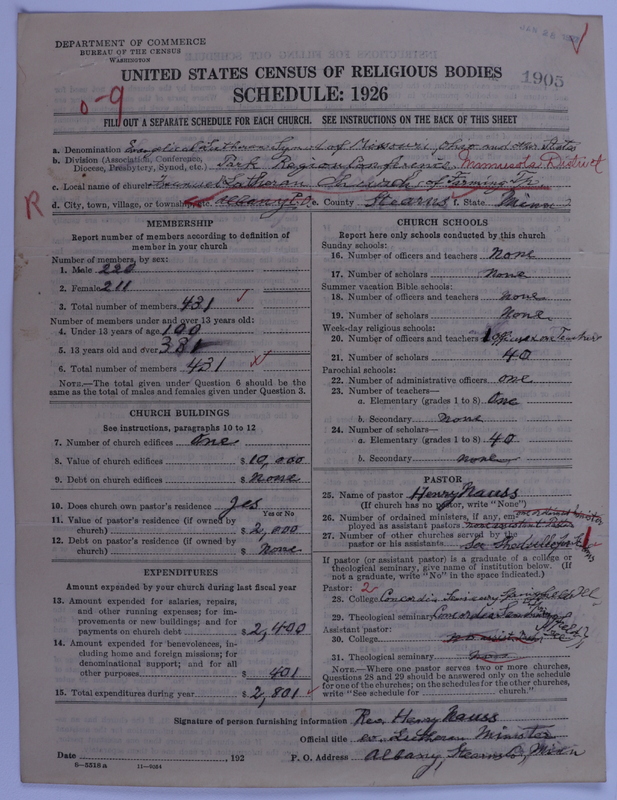 DEPARTMENT OF COMMERCE
BUREAU OF THE CENSUS
WASHINGTON
UNITED STATES CENSUS OF RELIGIOUS BODIES
1905
SCHEDULE: 1926
0-9
FILL OUT A SEPARATE SCHEDULE FOR EACH CHURCH. SEE INSTRUCTIONS ON THE BACK OF THIS SHEET
a. Denomination Evangelical Lutheran Synod of Missouri, Ohio and other States
b. Division (Association, Conference, Diocese, Presbytery, Synod, etc.) Park Region Conference Minnesota District
c. Local name of church Immanuel Lutheran Church, of Farming Tp.
R
d. City, town, village, or township, etc. Albany P.O. e. County Stearns f. State Minn
MEMBERSHIP
Report number of members according to definition of
member in your church
Number of members, by sex:
1. Male 220
2. Female 211
3. Total number of members 431
Number of members under and over 13 years old:
4. Under 13 years of age
5. 13 years old and over 381
6. Total number of members 431
NOTE.—The total given under Question 6 should be the
same as the total of males and females given under Question 3.
CHURCH BUILDINGS
See instructions, paragraphs 10 to 12
7. Number of church edifices One
8. Value of church edifices $ 10,000
9. Debt on church edifices $ None
10. Does church own pastor's residence? yes
Yes or No
11. Value of pastor's residence (if owned by
church) $ 2,000
12. Debt on pastor's residence (if owned by
church) $ None
EXPENDITURES
Amount expended by your church during last fiscal year
13. Amount expended for salaries, repairs,
and other running expenses; for im-
provements or new buildings; and for
payments on church debt $ 2,400
14. Amount expended for benevolences, in-
cluding home and foreign missions; for
denominational support; and for all
other purposes $ 401
15. Total expenditures during year $ 2,801
CHURCH SCHOOLS
Report here only schools conducted by this church
Sunday schools:
16. Number of officers and teachers None
17. Number of scholars None
Summer vacation Bible schools:
18. Number of officers and teachers None
19. Number of scholars None
Week-day religious schools:
20. Number of officers and teachers 1 officer or Teacher
21. Number of scholars 40
Parochial schools:
22. Number of administrative officers one
23. Number of teachers—
a. Elementary (grades 1 to 8) One
b. Secondary None
24. Number of scholars—
a. Elementary (grades 1 to 8) 40
b. Secondary None
PASTOR
25. Name of pastor Henry Nauss
(If church has no pastor, write "None")
26. Number of ordained ministers, if any, em-
ployed as assistant pastors
27. Number of other churches served by
pastor or his assistants 1
If pastor (or assistant pastor) is a graduate of a college or
theological seminary, give name of institution below. (If
not a graduate, write "No" in the space indicated.)
Pastor: 2
28. College Concordia Seminary Springfield Ill
29. Theological seminary Concordia Seminary
Assistant pastor:
30. College
31. Theological seminary None
NOTE.—Where one pastor serves two or more churches,
Questions 28 and 29 should be answered only on the schedule
for one of the churches; on the schedules for the other churches,
write "See schedule for church."
Signature of person furnishing information Rev. Henry Nauss
Official title Ev. Lutheran Minister
Date , 192 P. O. Address Albany, Stearns Co, Minn
8-5518 a 11-9064